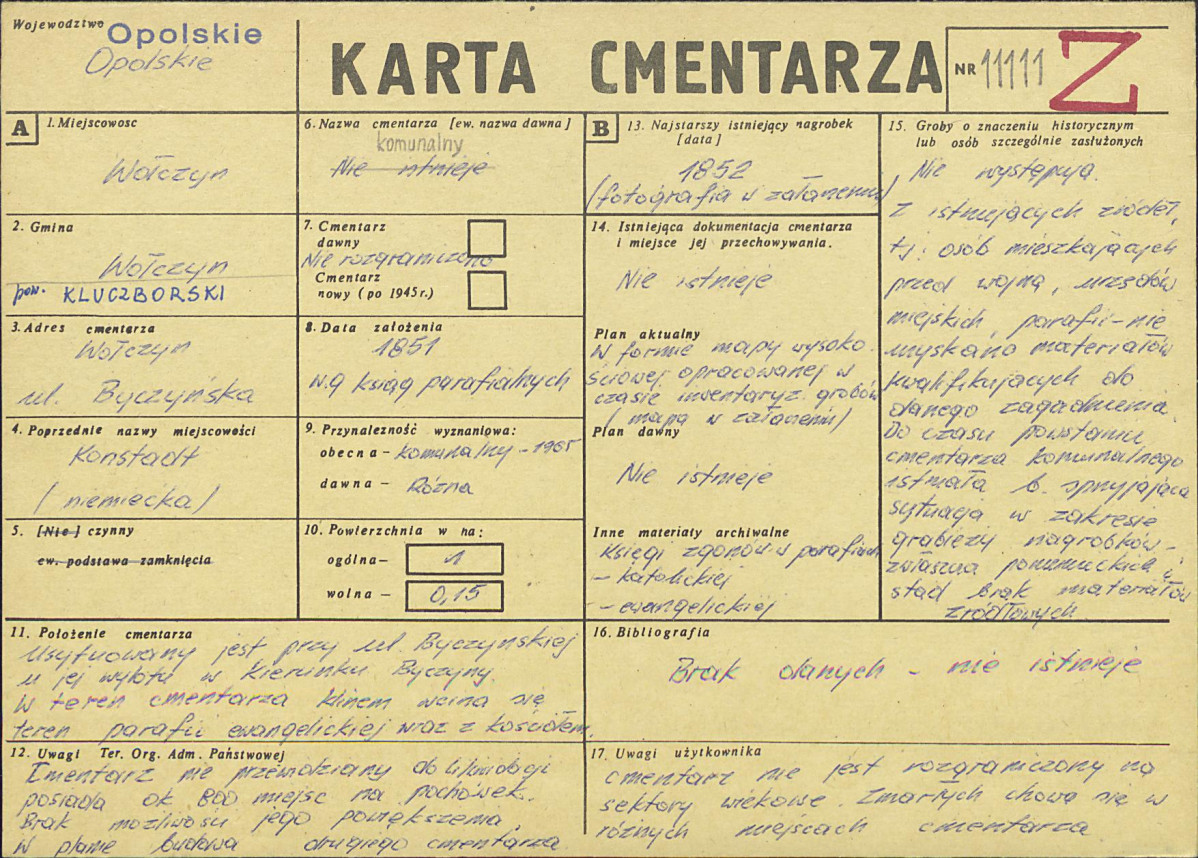 Wojewodztwo Opolskie
Opolskie
KARTA CMENTARZA
NR 11111 Z
A 1. Miejscowosc
Wołczyn
2. Gmina
Wołczyn
pow. KLUCZBORSKI
3. Adres cmentarza
Wołczyn
ul. Byczyńska
4. Poprzednie nazwy miejscowości
Konstadt
(niemiecka)
5. [Nie] czynny
ew. podstawa zamknięcia
6. Nazwa cmentarza [ew. nazwa dawna]
komunalny
Nie istnieje
7. Cmentarz
dawny
Nie rozgraniczono
Cmentarz
nowy (po 1945 r.)
8. Data założenia
1851
w.g ksiąg parafialnych
9. Przynależność wyznaniowa:
obecna - komunalny - 1965
dawna - Różna
10. Powierzchnia w ha:
ogólna - 1
wolna - 0,15
11. Położenie cmentarza
Usytuowany jest przy ul. Byczyńskiej
u jej wylotu w kierunku Byczyny.
W teren cmentarza klinem wcina się
teren parafii ewangelickiej wraz z kościołem.
12. Uwagi Ter. Org. Adm. Państwowej
Cmentarz nie przewidziany do likwidacji
posiada ok. 800 miejsc na pochówek.
Brak możliwości jego powiększenia.
W planie budowa drugiego cmentarza
B 13. Najstarszy istniejący nagrobek
[data]
1852
(fotografia w załączeniu)
14. Istniejąca dokumentacja cmentarza
i miejsce jej przechowywania.
Nie istnieje
Plan aktualny
W formie mapy wysoko-
ściowej opracowanej w
czasie inwentaryz. grobów
(mapa w załączeniu)
Plan dawny
Nie istnieje
Inne materiały archiwalne
Księgi zgonów w parafiach
- katolickiej
- ewangelickiej
15. Groby o znaczeniu historycznym
lub osób szczególnie zasłużonych
Nie występują.
Z istniejących źródeł,
tj. osób mieszkających
przed wojną, urzędów
miejskich, parafii - nie
uzyskano materiałów
kwalifikujących do
danego zagadnienia.
Do czasu powstania
cmentarza komunalnego
istniała b. sprzyjająca
sytuacja w zakresie
grabieży nagrobków -
zwłaszcza poniemieckich i
stąd brak materiałów
źródłowych.
16. Bibliografia
Brak danych - nie istnieje
17. Uwagi użytkownika
Cmentarz nie jest rozgraniczony na
sektory wiekowe. Zmarłych chowa się w
różnych miejscach cmentarza